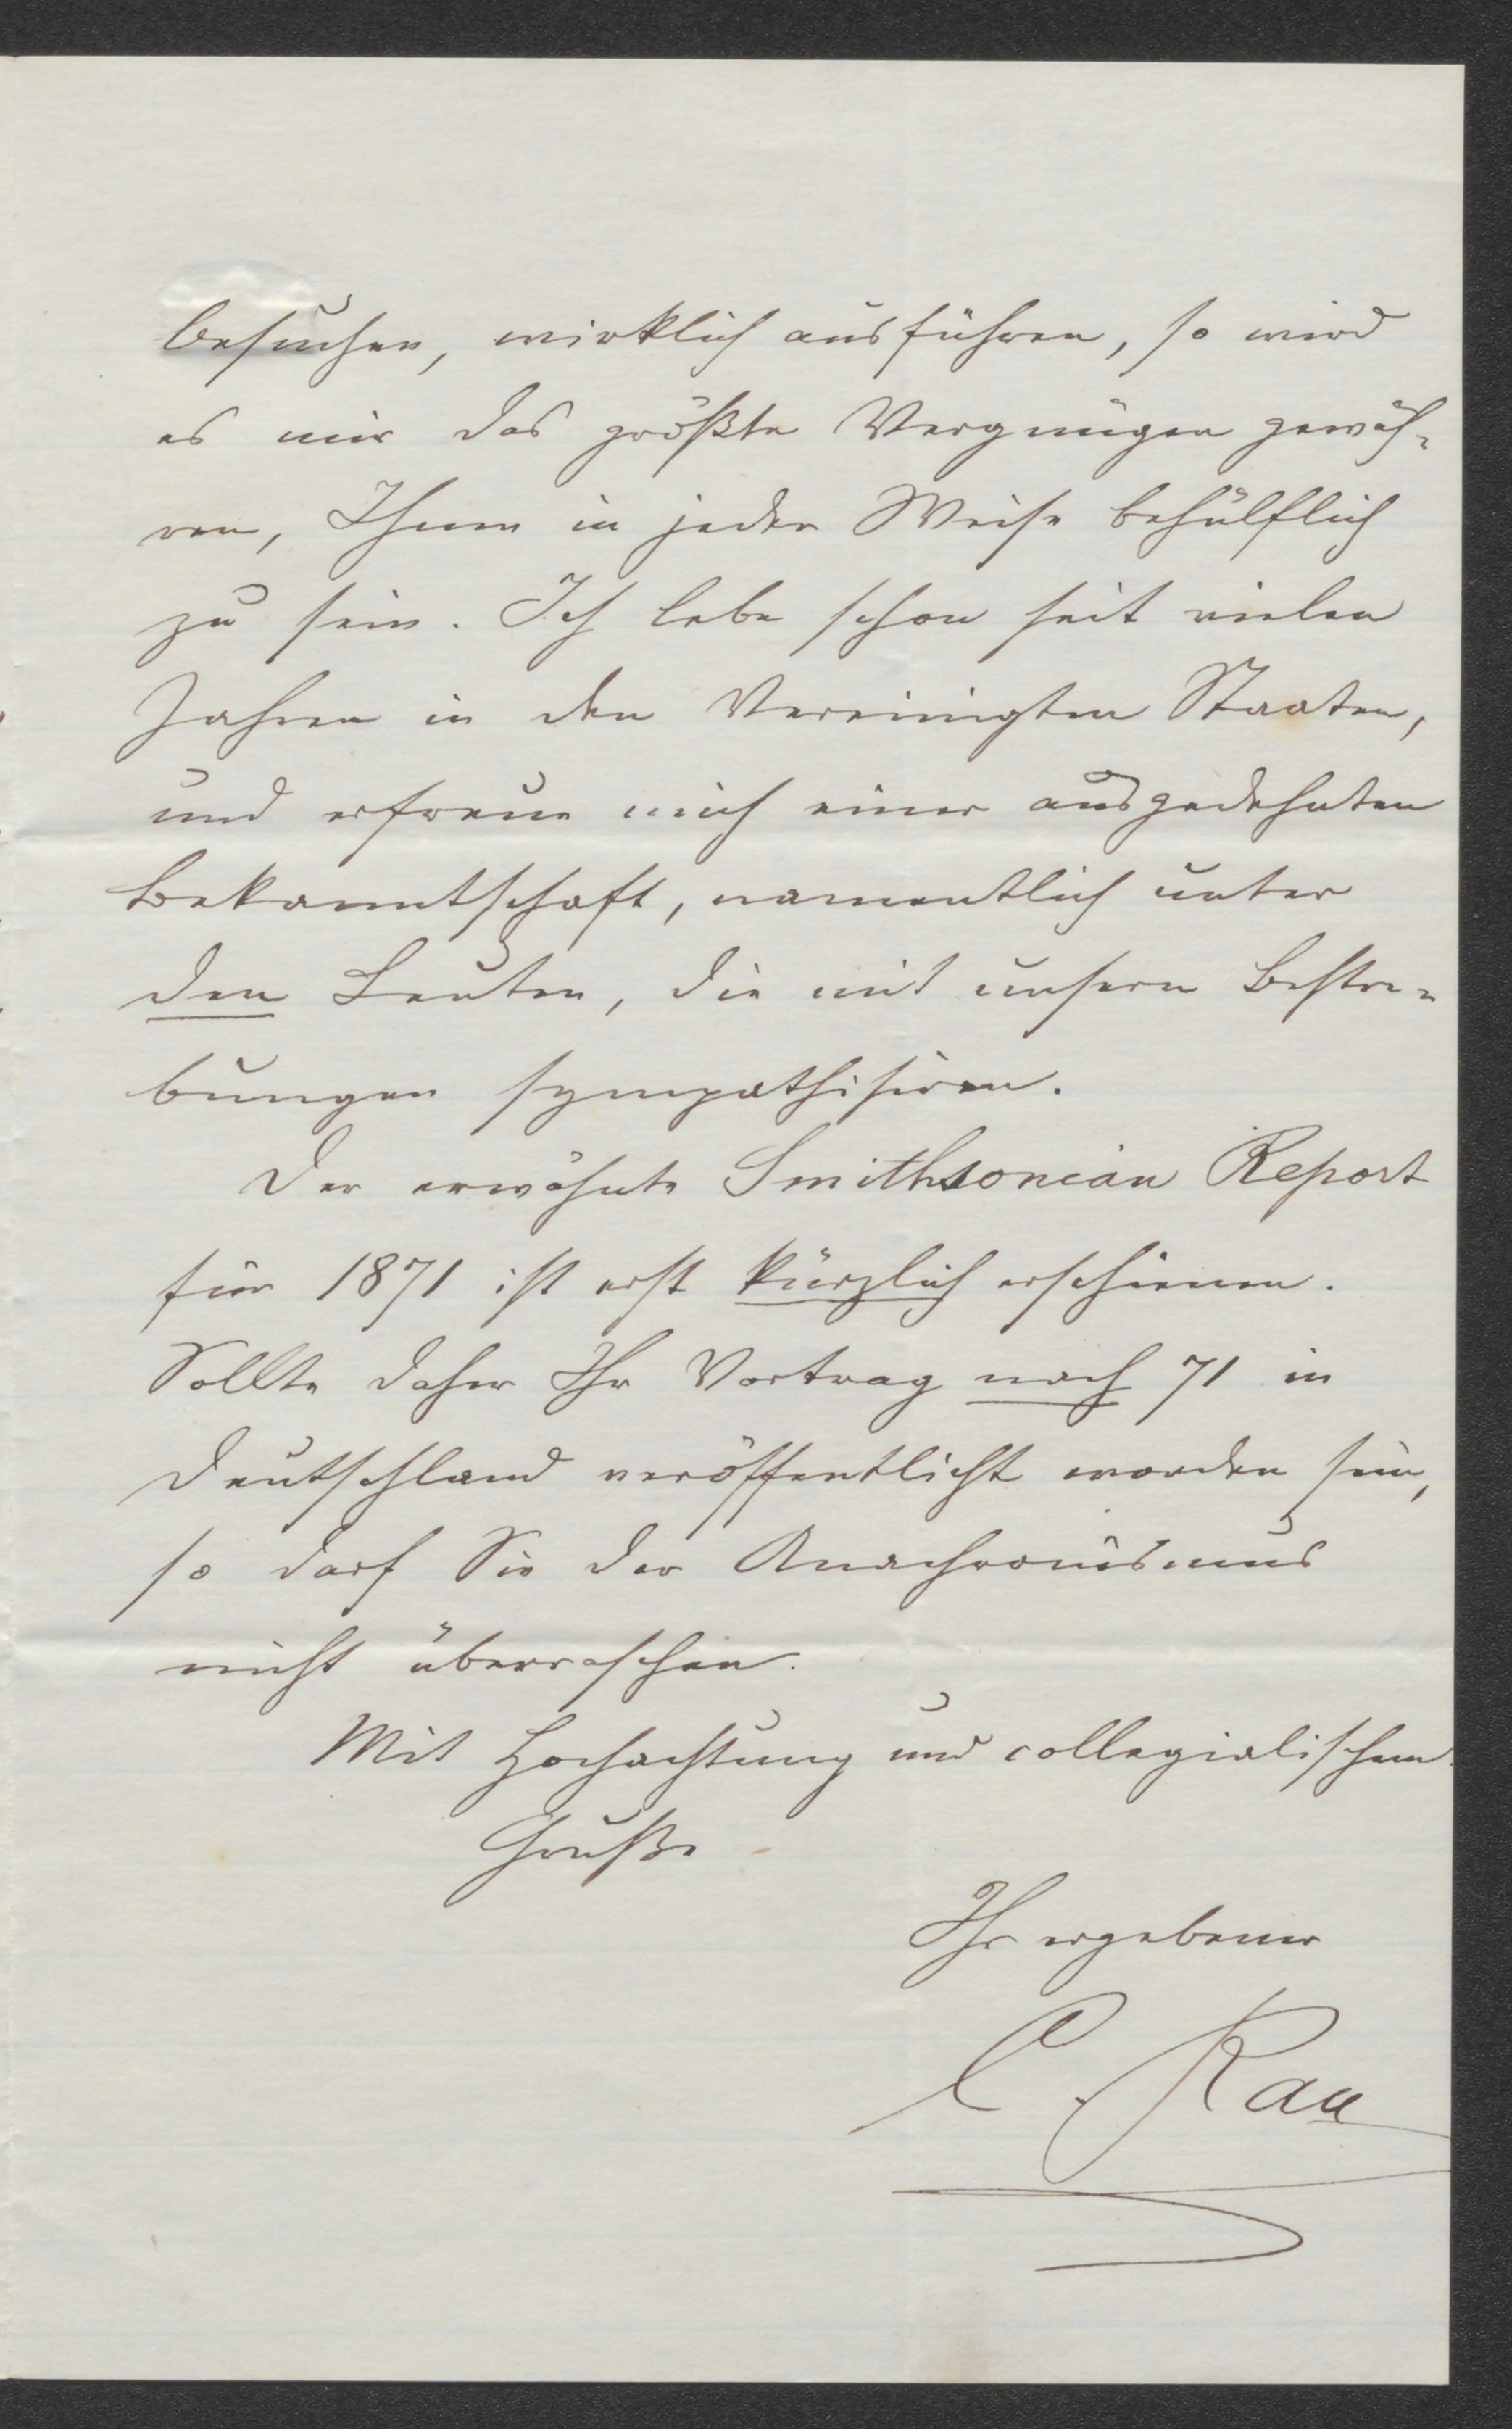 besuchen, wirklich ausführen, so wird
es mir das größte Vergnügen gewäh-
ren, Ihnen in jeder Weise behülflich
zu sein. Ich lebe schon seit vielen
Jahren in den Vereinigten Staaten,
und erfreue mich einer ausgedehnten
Bekanntschaft, namentlich unter
den Leuten, die mit unsern Bestre-
bungen sympathisiren.
Der erwähnte Smithsonian Report
für 1871 ist erst kürzlich erschienen.
Sollte daher Ihr Vortrag nach 71 in
Deutschland veröffentlicht worden sein,
so darf Sie der Anachronismus
nicht überraschen.
Mit Hochachtung und collegialischem
Gruße
Ihr ergebener
C. Rau